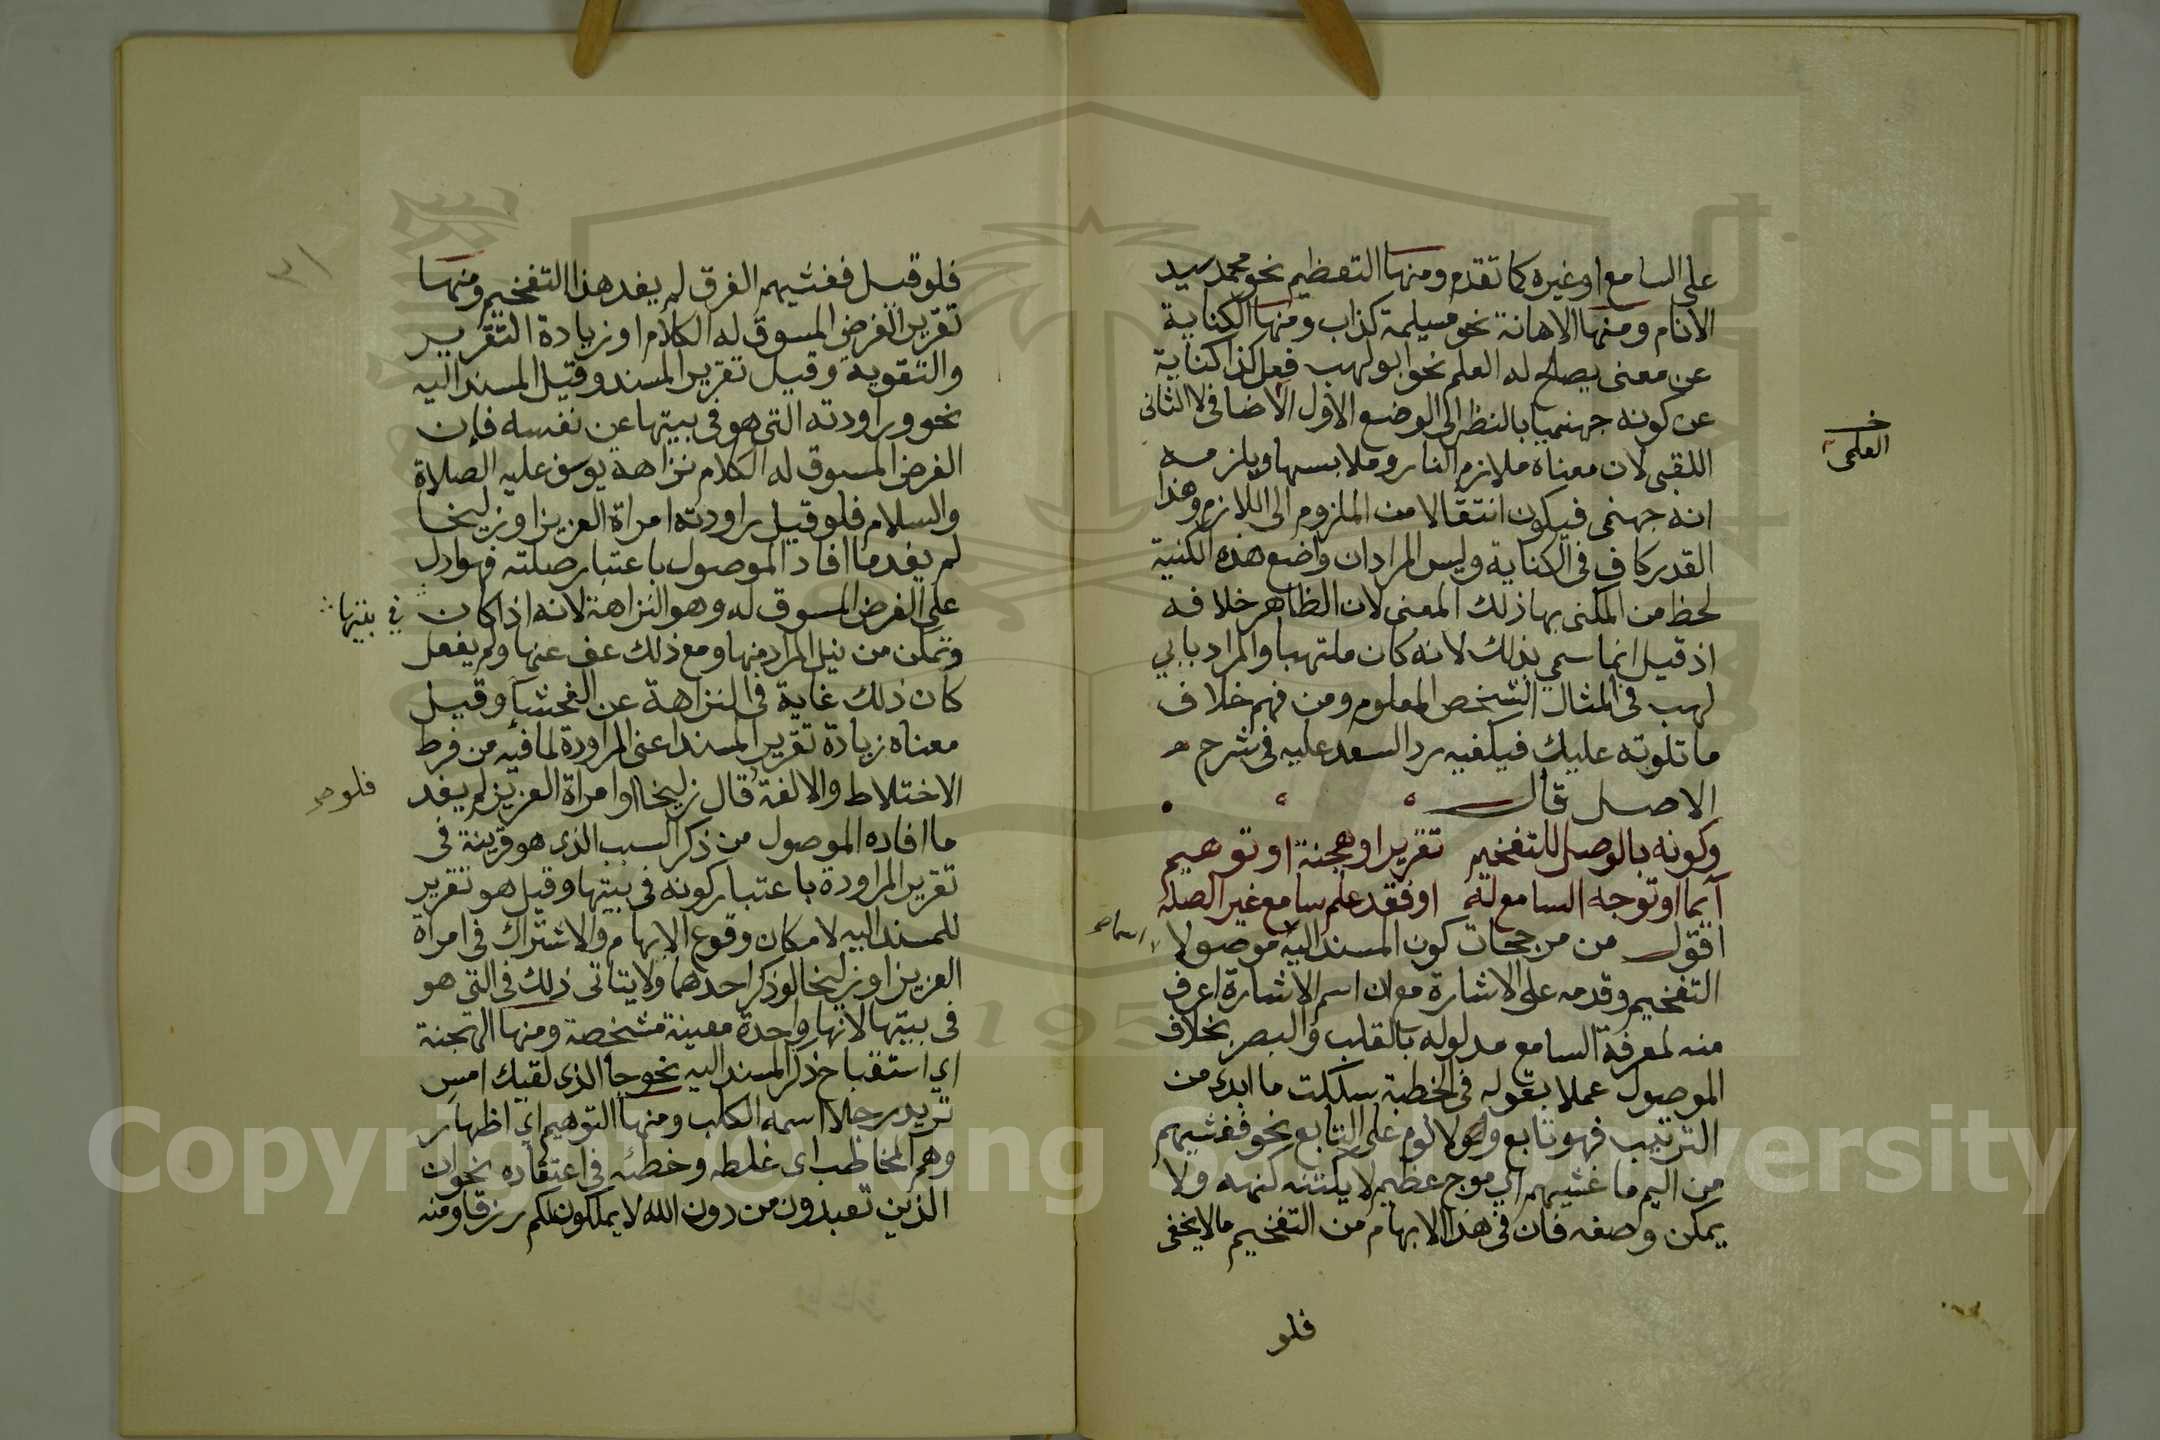 على السامع او غيره كما تقدم ومنها التعظيم نحو محمد سيد
الانام ومنها الاهانة نحو مسيلمة كذاب ومنها الكناية
عن معنى يصلح له العلم نحو ابو لهب فعل كذا كناية
عن كونه جهنميا بالنظر الى الوضع الاول الاضافى لا الثانى
العلمى
اللقبى لان معناه ملازم النار وملابسها ويلزمه
انه جهنمى فيكون انتقالا من الملزوم الى اللازم وهذا
القدر كاف فى الكناية وليس المراد ان واضع هذه الكنية
لحظ من المكنى بها ذلك المعنى لان الظاهر خلافه
اذ قيل انما سمي بذلك لانه كان ملتهبا والمراد بابي
لهب فى المثال الشخص المعلوم ومن فهم خلاف
ما تلوته عليك فيكفيه رد السعد عليه فى شرح
الاصل قال
وكونه بالوصل للتفخيم تقرير او هجنة او توهيم
آيما او توجه السامع له او فقد علم سامع غير الصله
اقول من مرجحات كون المسند اليه موصولا
التفخيم وقدمه على الاشارة مع ان اسم الاشارة اعرف
منه لمعرفة السامع مدلوله بالقلب والبصر بخلاف
الموصول عملا بقوله فى الخطبة سلكت ما ابدى من
الترتيب فهو تابع ولا لوم على التابع نحو فغشيهم
من اليم ما غشيهم اي موج عظيم لا يكتنه كنهه ولا
يمكن وصفه فان فى هذا الابهام من التفخيم ما لا يخفى
فلو
٣١
فلو قيل فغشيهم الغرق لم يفد هذا التفخيم ومنها
تقرير الغرض المسوق له الكلام او زيادة التقرير
والتقوية وقيل تقرير المسند وقيل المسند اليه
نحو وراودته التى هو فى بيتها عن نفسه فإن
الغرض المسوق له الكلام نزاهة يوسف عليه الصلاة
والسلام فلو قيل راودته امراة العزيز او زليخا
لم يفد ما افاد الموصول باعتبار صلته فهو ادل
على الغرض المسوق له وهو النزاهة لانه اذا كان
في بيتها
وتمكن من نيل المراد منها ومع ذلك عف عنها ولم يفعل
كان ذلك غاية فى النزاهة عن الفحشاء وقيل
معناه زيادة تقرير المسند اعنى المراودة لما فيه من فرط
الاختلاط والالفة قال زليخا او امراة العزيز لم يفد
فلو صح
ما افاده الموصول من ذكر السبب الذى هو قرينة فى
تقرير المراودة باعتبار كونه فى بيتها وقيل هو تقرير
للمسند اليه لامكان وقوع الابهام والاشتراك فى امراة
العزيز او زليخا لو ذكر احدهما ولا يتاتى ذلك فى التى هو
فى بيتها لانها واحدة معينة مشخصة ومنها الهجنة
اي استقباح ذكر المسند اليه نحو جا الذى لقيك امس
تريد رجلا اسمه الكلب ومنها التوهيم اي اظهار
وهم المخاطب اى غلطه وخطئه فى اعتقاده نحو ان
الذين تعبدون من دون الله لا يملكون لكم رزقا ومنه
Copyright © King Saud University
195